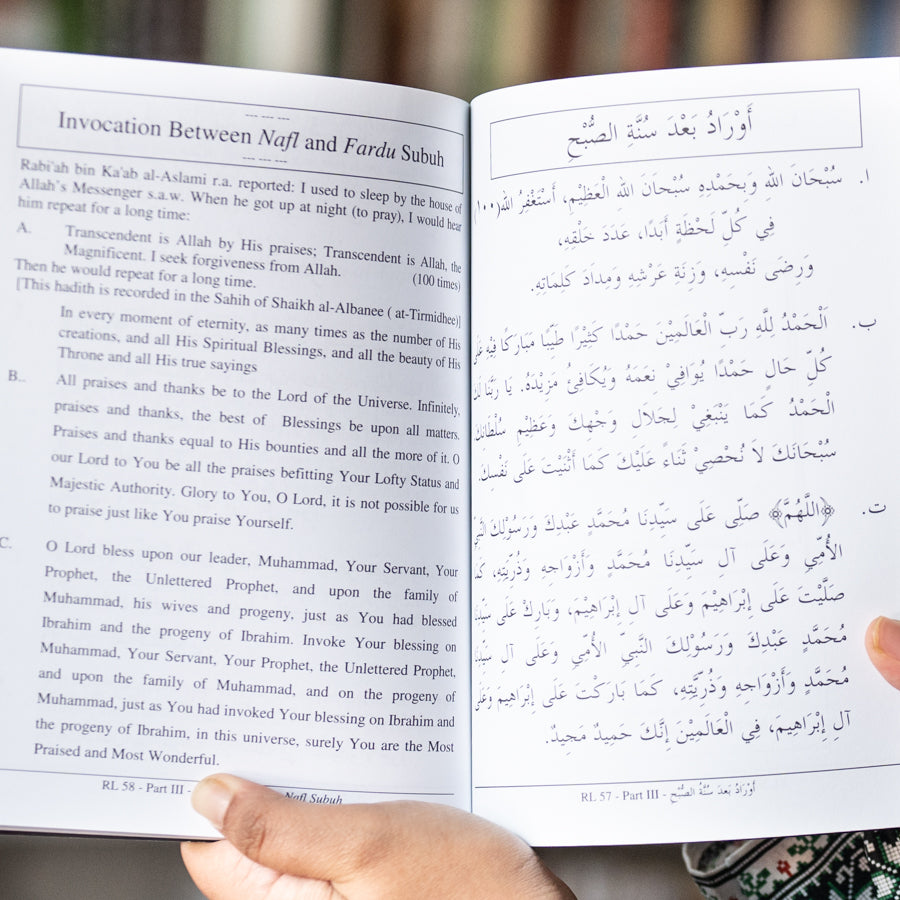 Invocation Between Nafl and Fardu Subuh
Rabi'ah bin Ka'ab al-Aslami r.a. reported: I used to sleep by the house of
Allah's Messenger s.a.w. When he got up at night (to pray), I would hear
him repeat for a long time:
A. Transcendent is Allah by His praises; Transcendent is Allah, the
Magnificent. I seek forgiveness from Allah. (100 times)
Then he would repeat for a long time.
[This hadith is recorded in the Sahih of Shaikh al-Albanee ( at-Tirmidhee)]
In every moment of eternity, as many times as the number of His
creations, and all His Spiritual Blessings, and all the beauty of His
Throne and all His true sayings
B.. All praises and thanks be to the Lord of the Universe. Infinitely,
praises and thanks, the best of Blessings be upon all matters.
Praises and thanks equal to His bounties and all the more of it. O
our Lord to You be all the praises befitting Your Lofty Status and
Majestic Authority. Glory to You, O Lord, it is not possible for us
to praise just like You praise Yourself.
C. O Lord bless upon our leader, Muhammad, Your Servant, Your
Prophet, the Unlettered Prophet, and upon the family of
Muhammad, his wives and progeny, just as You had blessed
Ibrahim and the progeny of Ibrahim. Invoke Your blessing on
Muhammad, Your Servant, Your Prophet, the Unlettered Prophet,
and upon the family of Muhammad, and on the progeny of
Muhammad, just as You had invoked Your blessing on Ibrahim and
the progeny of Ibrahim, in this universe, surely You are the Most
Praised and Most Wonderful.
RL 58 - Part III - Nafl Subuh
أَوْرَادُ بَعْدَ سُنَّةِ الصُّبْحِ
ا. سُبْحَانَ اللهِ وَبِحَمْدِهِ سُبْحَانَ الله الْعَظِيْمِ، أَسْتَغْفِرُ الله(١٠٠)
فِي كُلِّ لَحْظَةٍ أَبَدًا، عَدَدَ خَلْقِهِ،
وَرِضَى نَفْسِهِ، وَزِنَةِ عَرْشِهِ وَمِدَادَ كَلِمَاتِهِ.
ب. اَلْحَمْدُ لِلَّهِ رَبِّ الْعَالَمِيْنَ حَمْدًا كَثِيْرًا طَيِّبًا مُبَارَكًا فِيهِ عَلَى
كُلِّ حَالٍ حَمْدًا يُوَافِيْ نِعَمَهُ وَيُكَافِئُ مَزِيْدَهُ. يَا رَبَّنَا لَكَ
الْحَمْدُ كَمَا يَنْبَغِيْ لِجَلَالِ وَجْهِكَ وَعَظِيْمِ سُلْطَانِكَ
سُبْحَانَكَ لاَ نُحْصِيْ ثَنَاءً عَلَيْكَ كَمَا أَثْنَيْتَ عَلَى نَفْسِكَ.
ت. ﴿اللَّهُمَّ﴾ صَلِّى عَلَى سَيِّدِنَا مُحَمَّدٍ عَبْدِكَ وَرَسُوْلِكَ النَّبِيِّ
الأُمِّي وَعَلَى آلِ سَيِّدِنَا مُحَمَّدٍ وَأَزْوَاجِهِ وَذُرِّيَّتِهِ، كَمَا
صَلَّيْتَ عَلَى إِبْرَاهِيْمَ وَعَلَى آلِ إِبْرَاهِيْمَ، وَبَارِكْ عَلَى سَيِّدِنَا
مُحَمَّدٍ عَبْدِكَ وَرَسُوْلِكَ النَّبِيِّ الأُمِّي وَعَلَى آلِ سَيِّدِنَا
مُحَمَّدٍ وَأَزْوَاجِهِ وَذُرِّيَّتِهِ، كَمَا بَارَكْتَ عَلَى إِبْرَاهِيْمَ وَعَلَى
آلِ إِبْرَاهِيمَ، فِي الْعَالَمِيْنَ إِنَّكَ حَمِيدٌ مَجِيدٌ.
RL 57 - Part III - أَوْرَادُ بَعدَ سُنَّةُ الصُّبْحِ